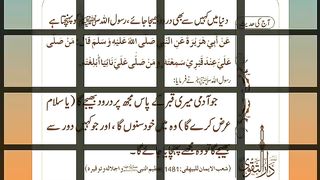 آج کی حدیث
دنیا میں کہیں سے بھی درود بھیجا جائے، رسول اللہ ﷺ کو پہنچتا ہے
عَنْ أَبِي هُرَيْرَةَ عَنِ النَّبِيِّ صَلَّى اللهُ عَلَيْهِ وَسَلَّمَ قَالَ: مَنْ صَلَّى
عَلَيَّ عِنْدَ قَبْرِي سَمِعْتُهُ، وَمَنْ صَلَّى عَلَيَّ نَائِيًا أُبْلِغْتُهُ۔
رسول اللہ ﷺ نے فرمایا:
جو آدمی میری قبر کے پاس مجھ پر درود بھیجے گا (یا سلام
عرض کرے گا) وہ میں خود سنوں گا، اور جو کہیں دور سے
بھیجے گا وہ مجھے پہنچایا جائے گا۔
(شعب الایمان للبیہقی: 1481، تعظیم النبی ﷺ واجلالہ وتوقیرہ)
دار التقویٰ